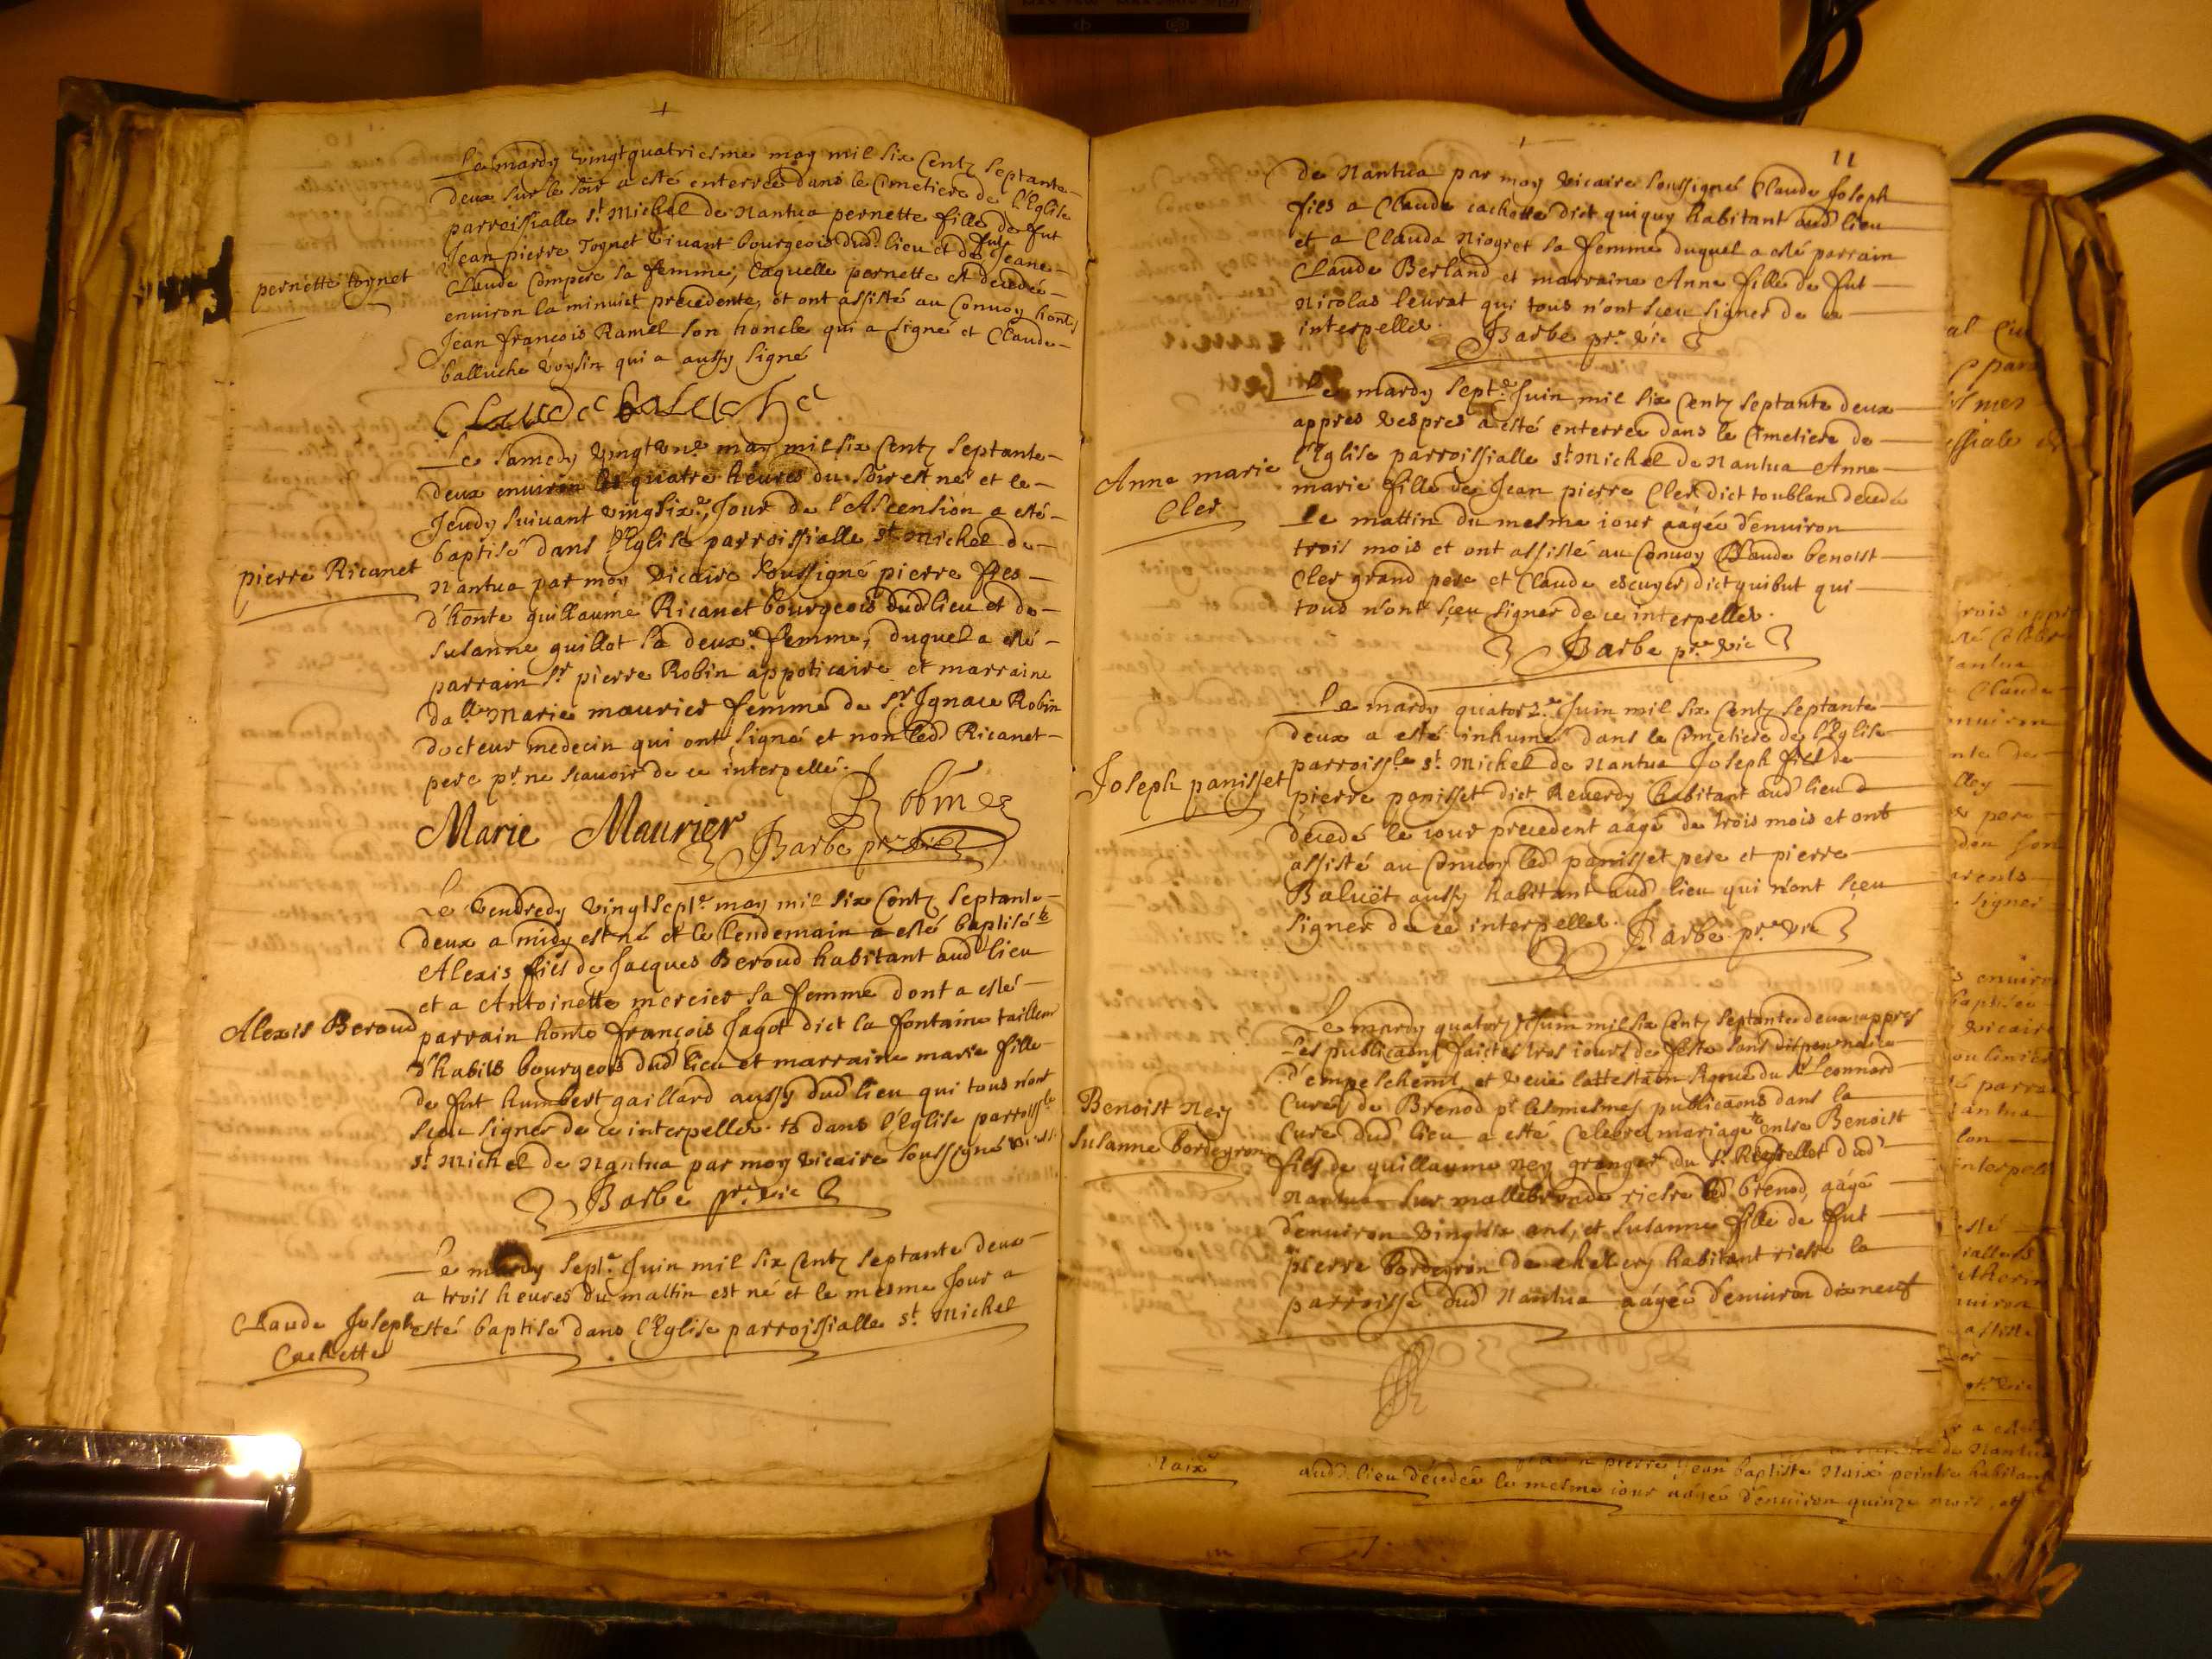 Le mardy vingtquatriesme may mil six Centz septante
deux sur le soir a esté enterrée dans le Cimetiere de l'Eglise
parroissialle st Michel de Nantua pernette fille de fut
Jean pierre Tognet vivant bourgeois dud. lieu et de fut Jeane
Claude Compere sa femme, laquelle pernette est decedée
pernette tognet
environ la minuict precedente, et ont assisté au Convoy hont
Jean francois Ramel son honcle qui a signé et Claude
balluche voysin qui a aussy signé
Claude baleuche
Le samedy vingt un.e may mil six Centz septante
deux environ les quatre heures du soir est né et le
Jeudy suivant vingsix.e, Jour de l'Ascention a esté
baptisé dans l'Eglise parroissialle st Michel de
pierre Ricanet
Nantua par moy vicaire soussigné pierre fils
d'honte guillaume Ricanet bourgeois dud lieu et de
susanne guillot sa deux.e femme, duquel a esté
parrain sr pierre Robin appoticaire et marraine
da.lle Marie maurier femme de sr Ignace Robin
docteur medecin qui ont signé et non led Ricanet
pere pr. ne scavoir de ce interpellé.
Marie Maurier
Robin
Barbe pr.e vic
Le vendredy vingt sept.e may mil six Centz septante
deux a midy est né et le lendemain a esté baptisé to
Alexis fils de Jacques Beroud habitant aud lieu
et a Antoinette mercier sa femme dont a esté
Alexis Beroud
parrain honte françois Jagot dict la fontaine tailleur
d'habits bourgeois dud lieu et marraine marie fille
de fut humbert gaillard aussy dud lieu qui tous n'ont
sceu signer de ce interpellés. to dans l'Eglise parroissle
st Michel de Nantua par moy vicaire soussigné
Barbe pr.e vic
Le mardy sept.e Juin mil six Centz septante deux
a trois heures du mattin est né et le mesme Jour a
Claude Joseph
Cachette
esté baptisé dans l'Eglise parroissialle st. Michel
11
de Nantua par moy vicaire soussigné Claude Joseph
fils a Claude cachette dict quiquy habitant aud lieu
et a Claude Niogret sa femme duquel a esté parrain
Claude Berland et marraine Anne fille de fut
Nicolas leurat qui tous n'ont sceu signer de ce
interpellés.
Barbe pr.e vic
Le mardy sept.e Juin mil six Centz septante deux
appres vespres a esté enterrée dans le Cimetiere de
l'Eglise parroissialle st Michel de Nantua Anne
Anne marie
Cler
marie fille de Jean pierre Cler dict toublan decedée
le mattin du mesme iour aagée d'environ
trois mois et ont assisté au Convoy Claude benoist
Cler grand pere et Claude escuyer dict quibut qui
tous n'ont sceu signer de ce interpellés.
Barbe pr.e vic
Le mardy quatorz.e Juin mil six Centz septante
deux a esté inhumé dans le Cimetiere de l'Eglise
parroiss.le st. Michel de Nantua Joseph fils de
Joseph panisset
pierre panisset dict Reverdy habitant aud lieu
decedé le iour precedent aagé de trois mois et ont
assisté au Convoy led panisset pere et pierre
Baluet aussy habitant aud lieu qui n'ont sceu
signer de ce interpellés.
Barbe pr.e vic
Le mardy quatorz.e Juin mil six Centz septante deux appres
les publicaons faictes trois iours de feste sans
d'empeschemt, et veue lattestaon signée du sr Leonnard
Curé de Brenod pr les mesmes publicaons dans la
Benoist Ney
Susanne bordeyron
Cure dud lieu a esté Celebré mariage entre Benoist
fils de guillaume ney granger du sr dud
Nantua sur mallebronde riere led brenod, aagé
d'environ vingtsix ans, et Susanne fille de fut
pierre bordeyron de habitant riere la
parroisse dud Nantua aagée d'environ dixneuf
Naix
pierre Jean baptiste Naix peintre habitant
aud. lieu décedée le mesme iour aagée d'environ quinze mois, et